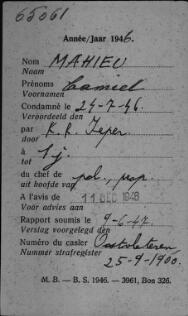 65061
Année/Jaar 1946.
Nom MAHIEU
Naam
Prénoms Camiel
Voornamen
Condamné le 24-7-46.
Veroordeeld den
par K. K. Ieper
door
à 1 j.
tot
du chef de pol, prop.
uit hoofde van
A l'avis de 11 DEC 1946
Voor advies aan
Rapport soumis le 9-6-47.
Verslag voorgelegd den
Numéro du casier Oostvleteren
Nummer strafregister 25-9-1900.
M. B. — B. S. 1946. — 3961, Bon 326.